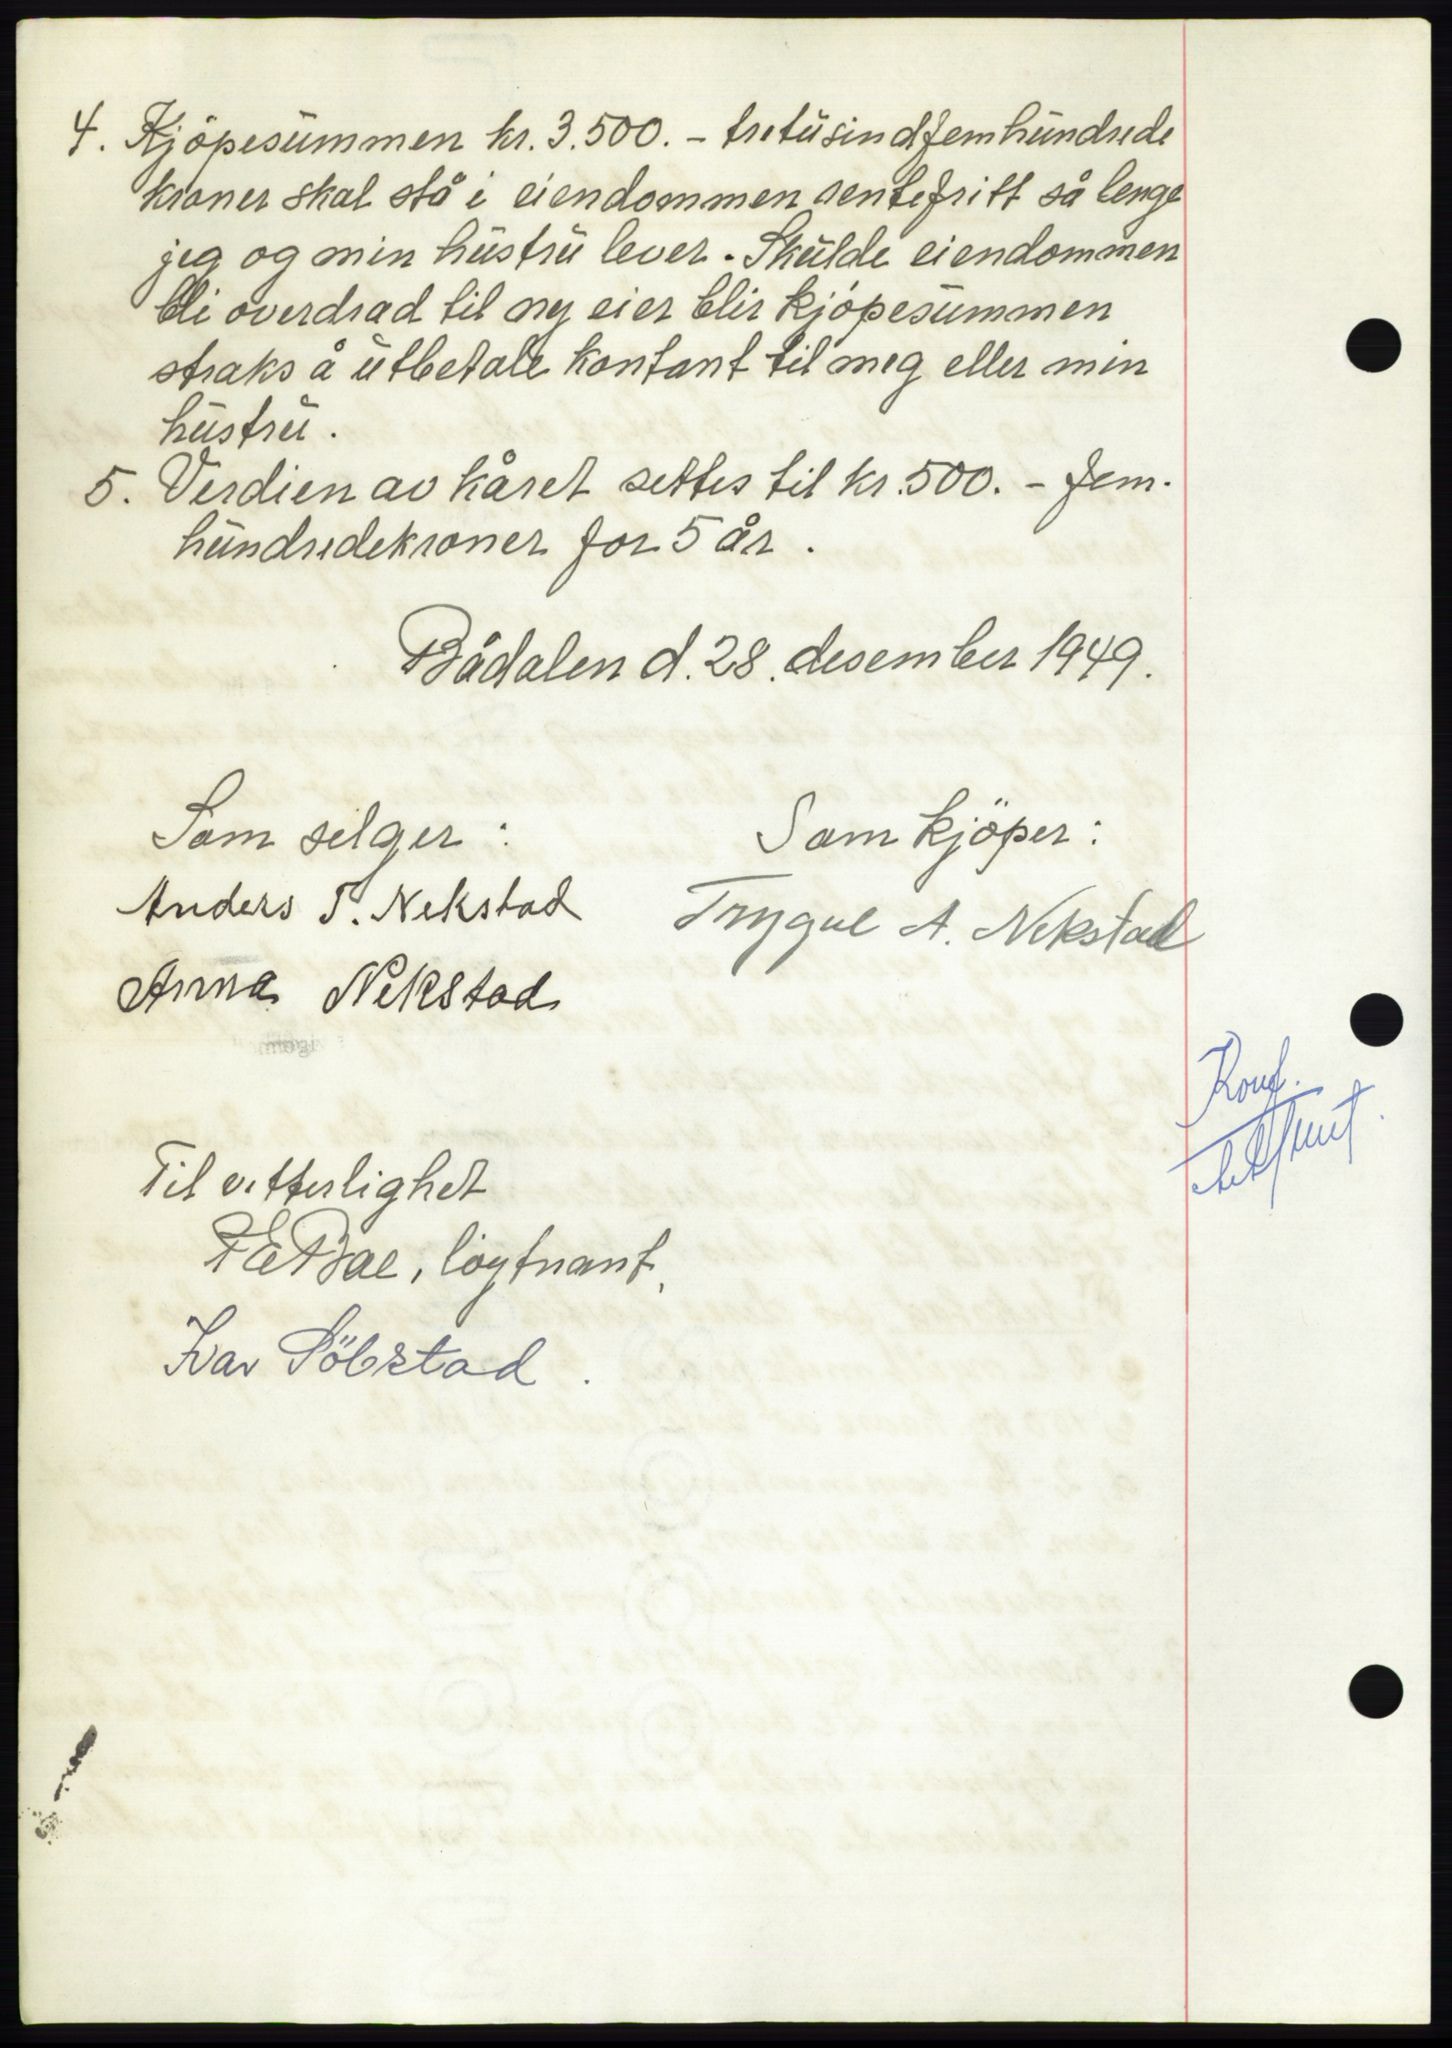 4. Kjöpesummen kr. 3.500. – tretusindfemhundrede
kroner skal stå i eiendommen rentefritt så lenge
jeg og min hustru lever. Skulde eiendommen
bli overdrad til ny eier blir kjöpesummen
straks å utbetale kontant til meg eller min
hustru.
5. Verdien av kåret settes til kr. 500. – fem-
hundredekroner for 5 år.
Bådalen d. 28. desember 1949.
Som selger:
Anders T. Nekstad
Anna Nekstad
Som kjöper:
Trygve A. Nekstad
Konf.
Til vitterlighet
Bae, löytnant,
Ivar Söbstad.